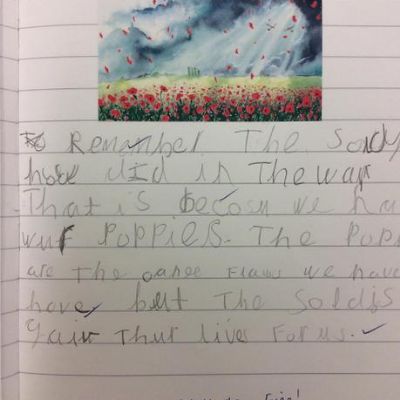 To Remember The Soldy
how did in The war
That is becosu we ha
wur POPPIES. The POP
are The oanee Flaws we have
have, but The Soldis
gair Thur lives For us.